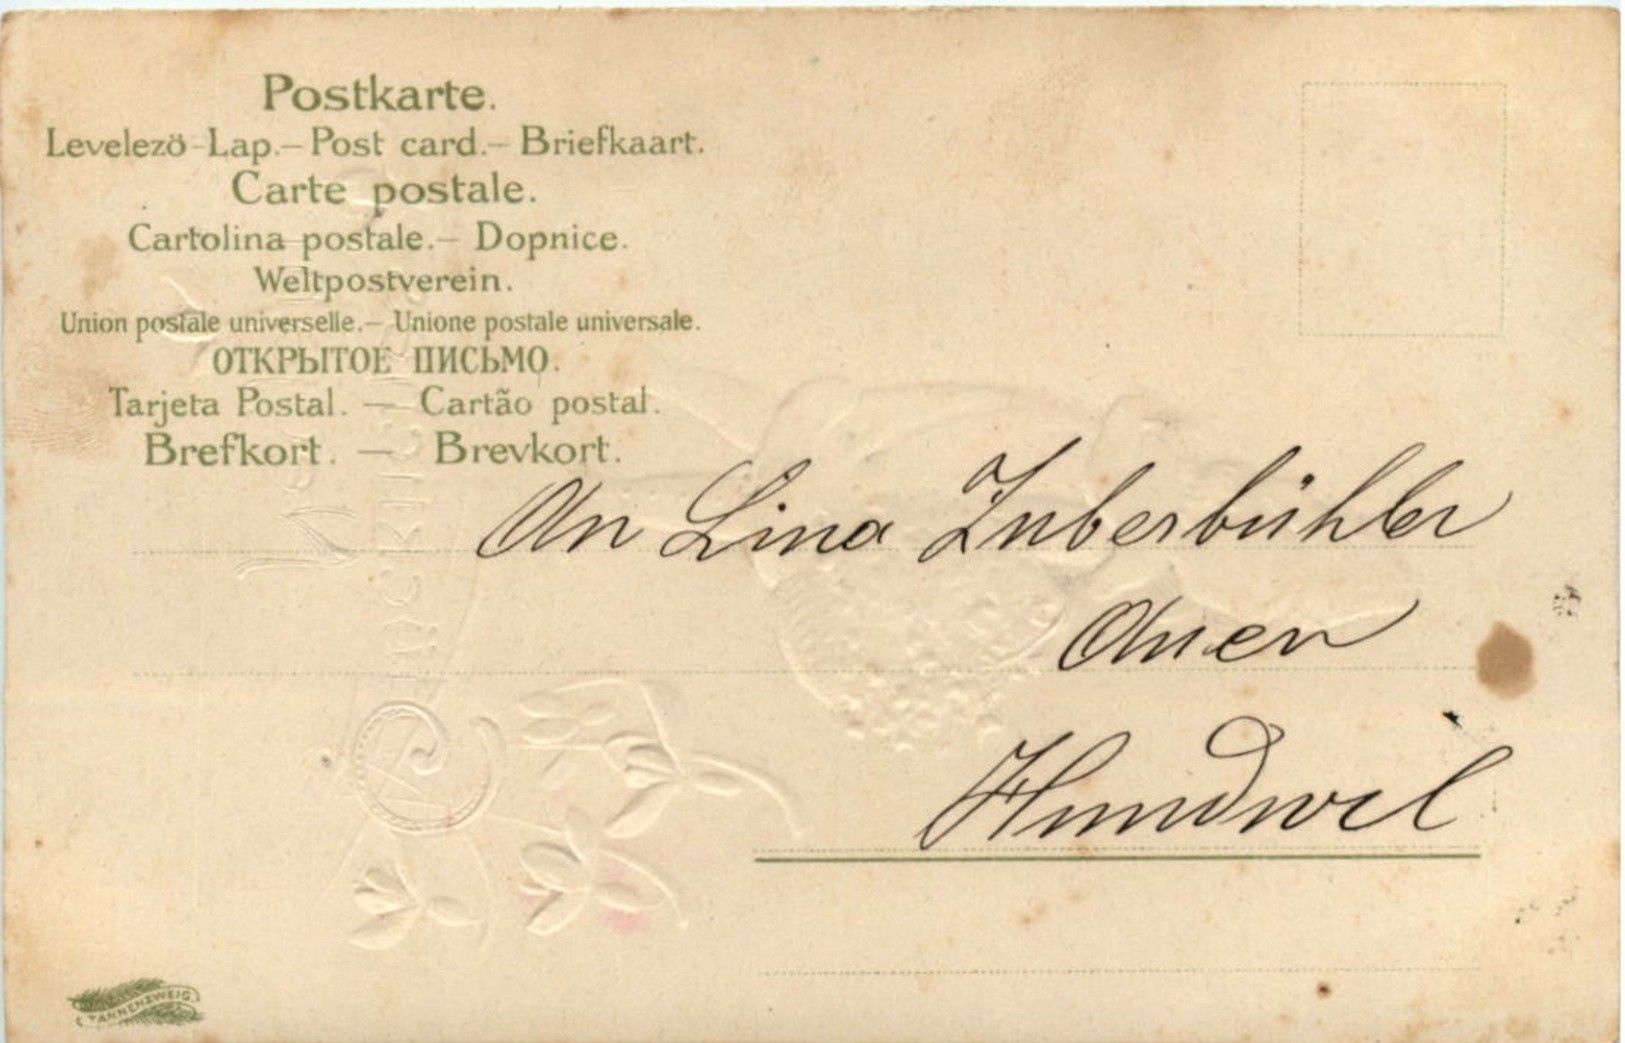 Postkarte.
Levelezö-Lap.– Post card.– Briefkaart.
Carte postale.
Cartolina postale.– Dopnice.
Weltpostverein.
Union postale universelle.– Unione postale universale.
ОТКРЫТОЕ ПИСЬМО.
Tarjeta Postal. — Cartão postal.
Brefkort. — Brevkort.
An Lina Zuberbühler
Hundwil
TANNENZWEIG